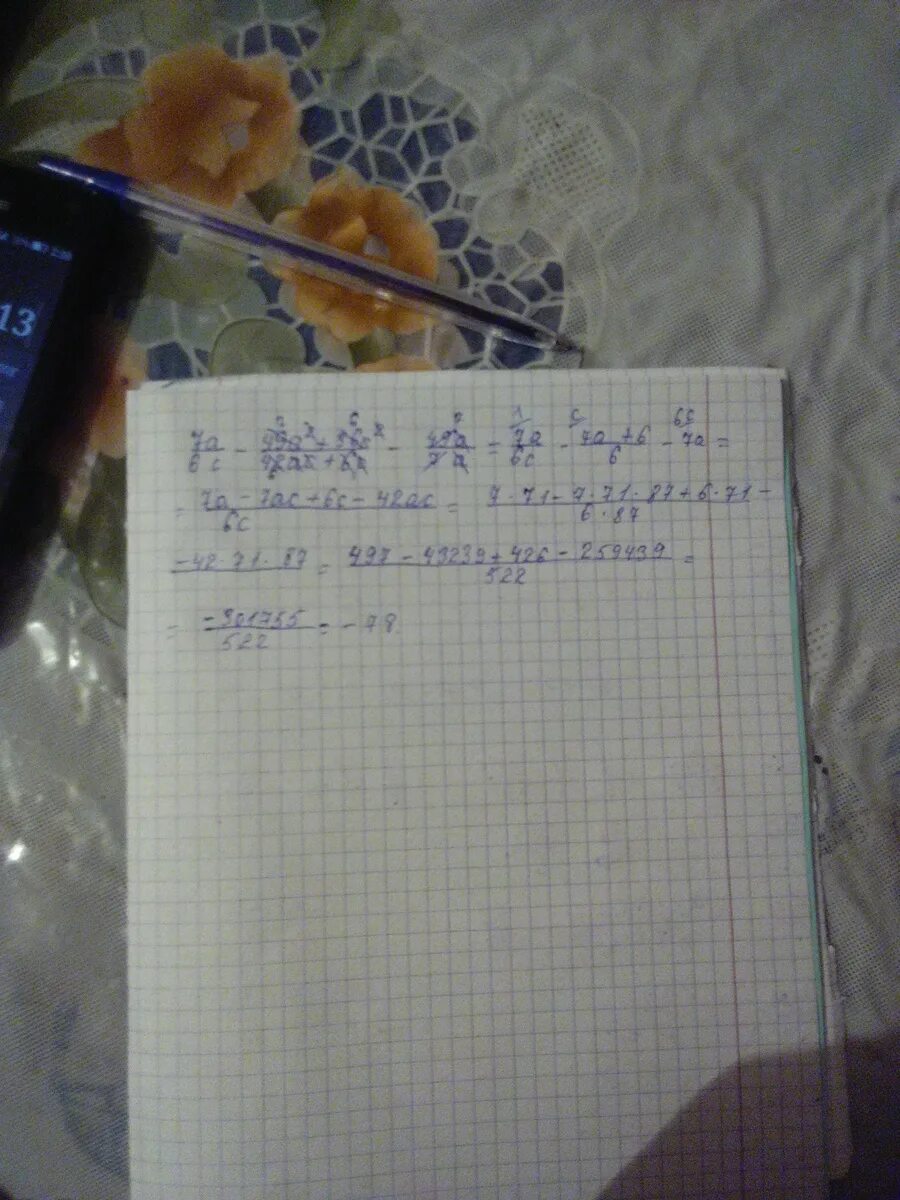 13
7a/6c - 49a² + 36c²/42ac + - 49a/7a = 7a/6c - 7a + 6/6 - 7a =
= 7a - 7ac + 6c - 42ac/6c = 7·71 - 7·71·87 + 6·71 -/6·87
- 42·71·87 = 497 - 43239 + 426 - 259439/522 =
= -301755/522 = - 78